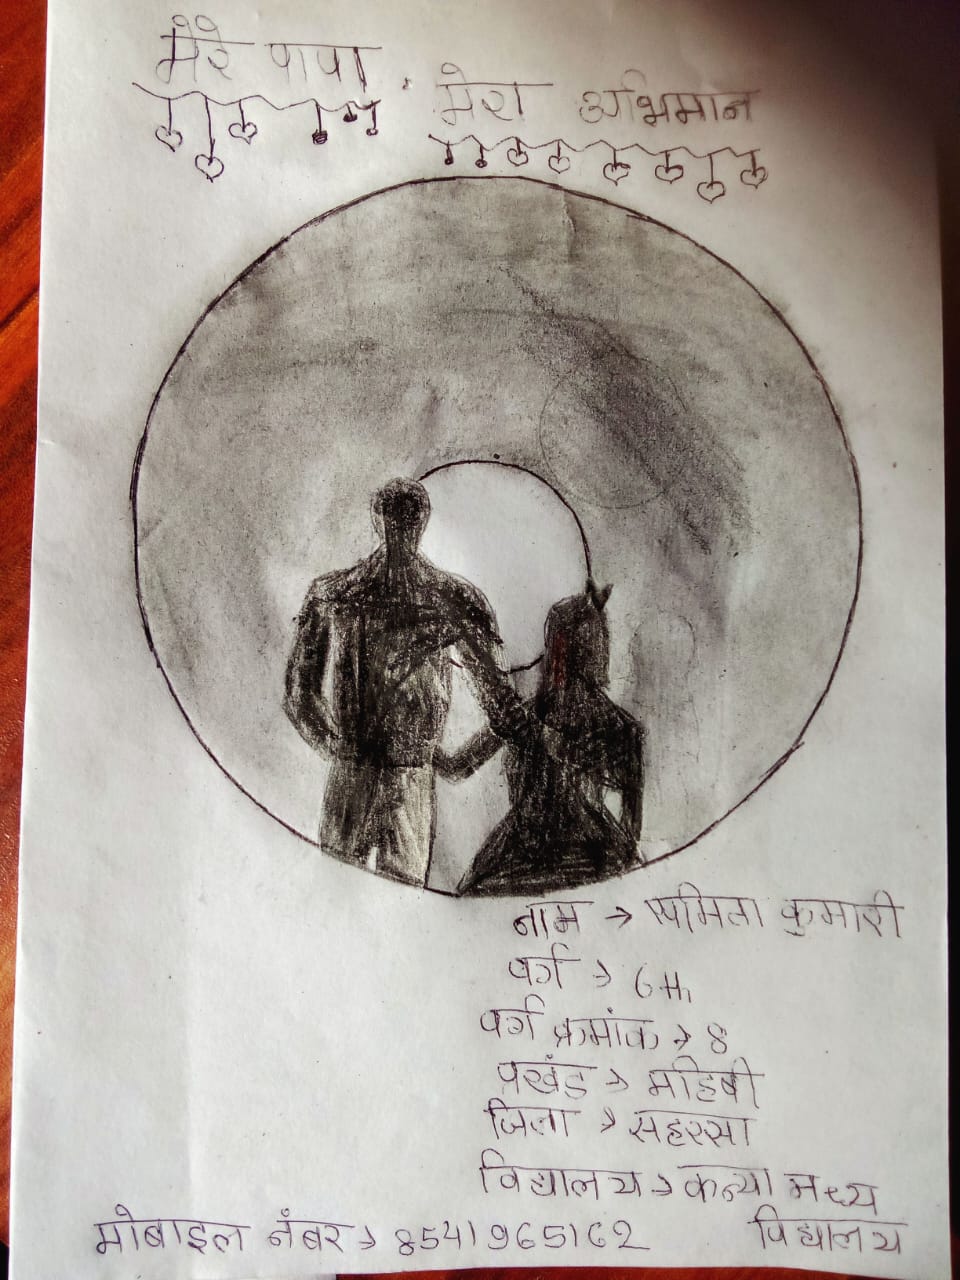 मेरे पापा
मेरा अभिमान
नाम → कुमारी
वर्ग → 6th
वर्ग क्रमांक → 8
प्रखंड → महिषी
जिला → सहरसा
विद्यालय → कन्या मध्य
विद्यालय
मोबाइल नंबर → 8541965162